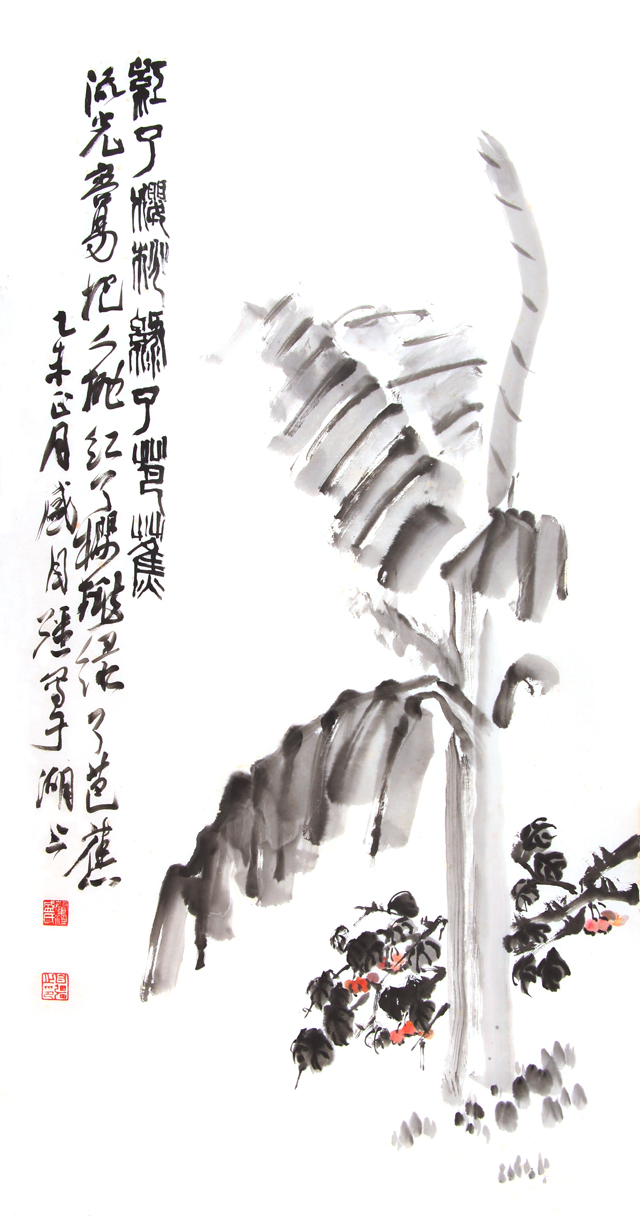 紅了櫻桃綠了芭蕉
流光容易把人抛红了樱桃绿了芭蕉
乙未正月盛自强写于湖上